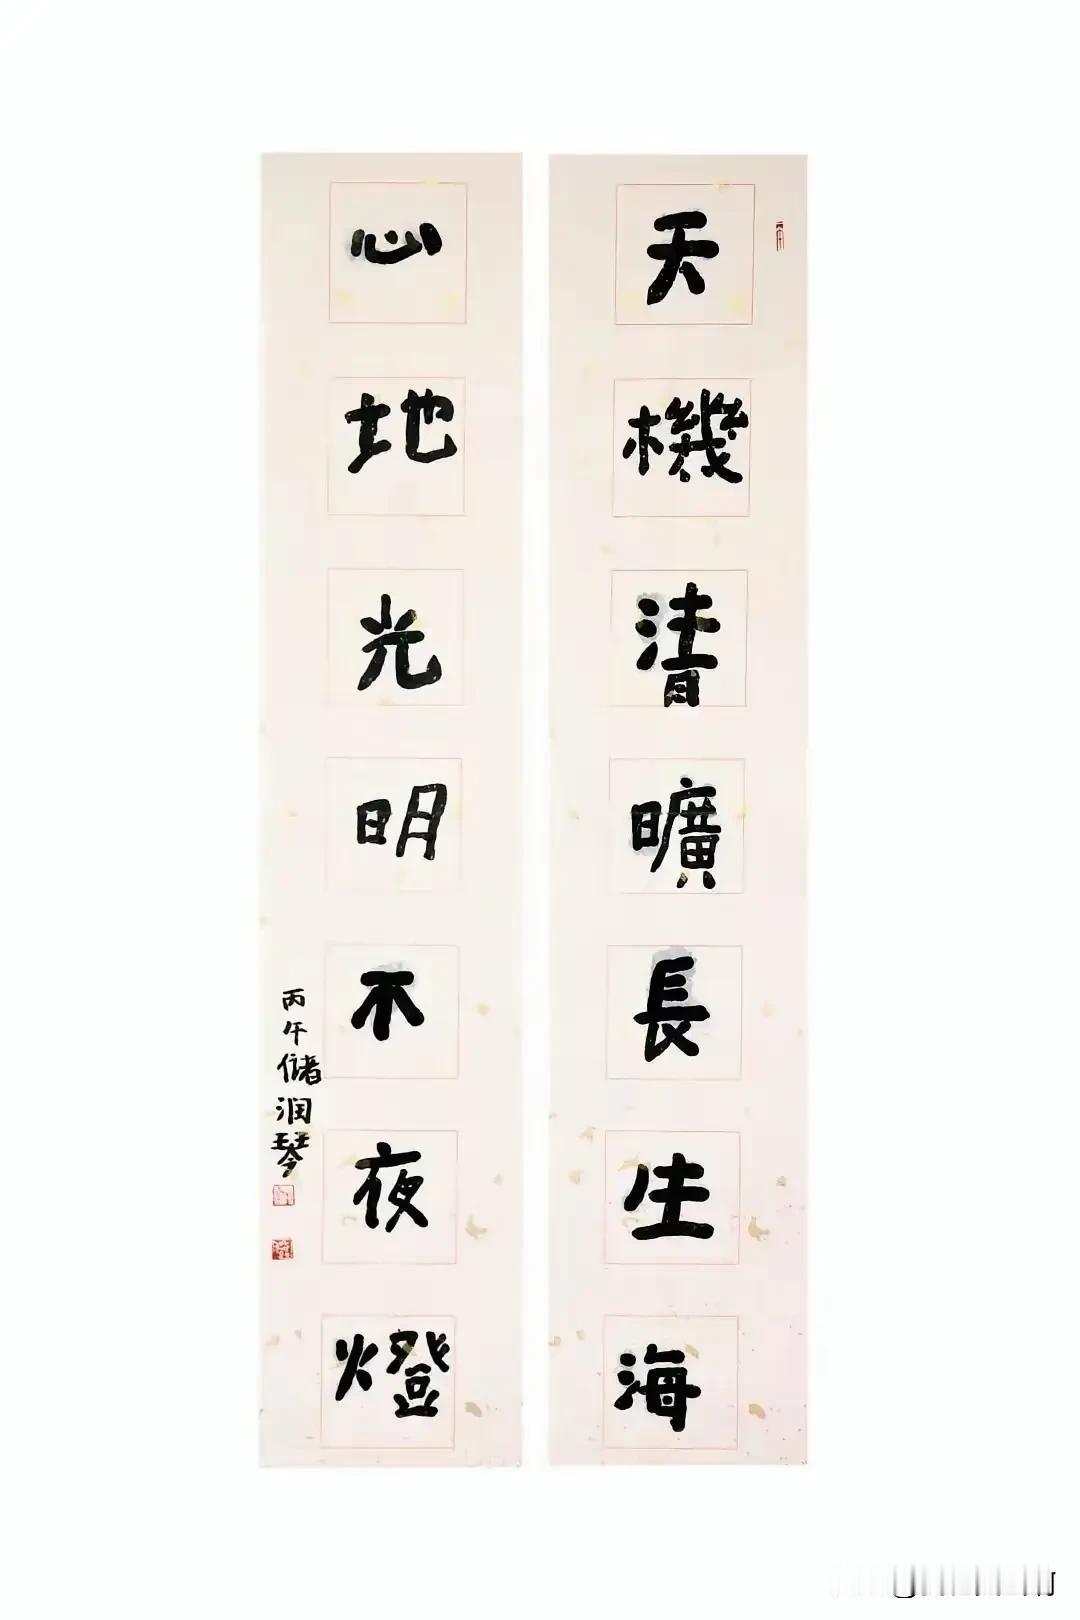 天機清曠長生海
心地光明不夜燈
丙午儲润琴